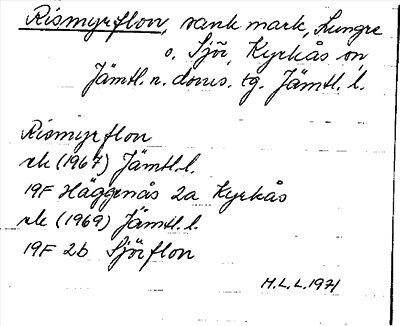 Rismyrflon, sank mark, Lungre
o. Sjör, Kyrkås sn,
Jämtl. n. doms. tg. Jämtl. l.
Rismyrflon
rek (1967) Jämtl. l.
19F Häggenås 2a Kyrkås
rek (1969) Jämtl. l.
19F 2b Sjörflon
H.L.L. 1971